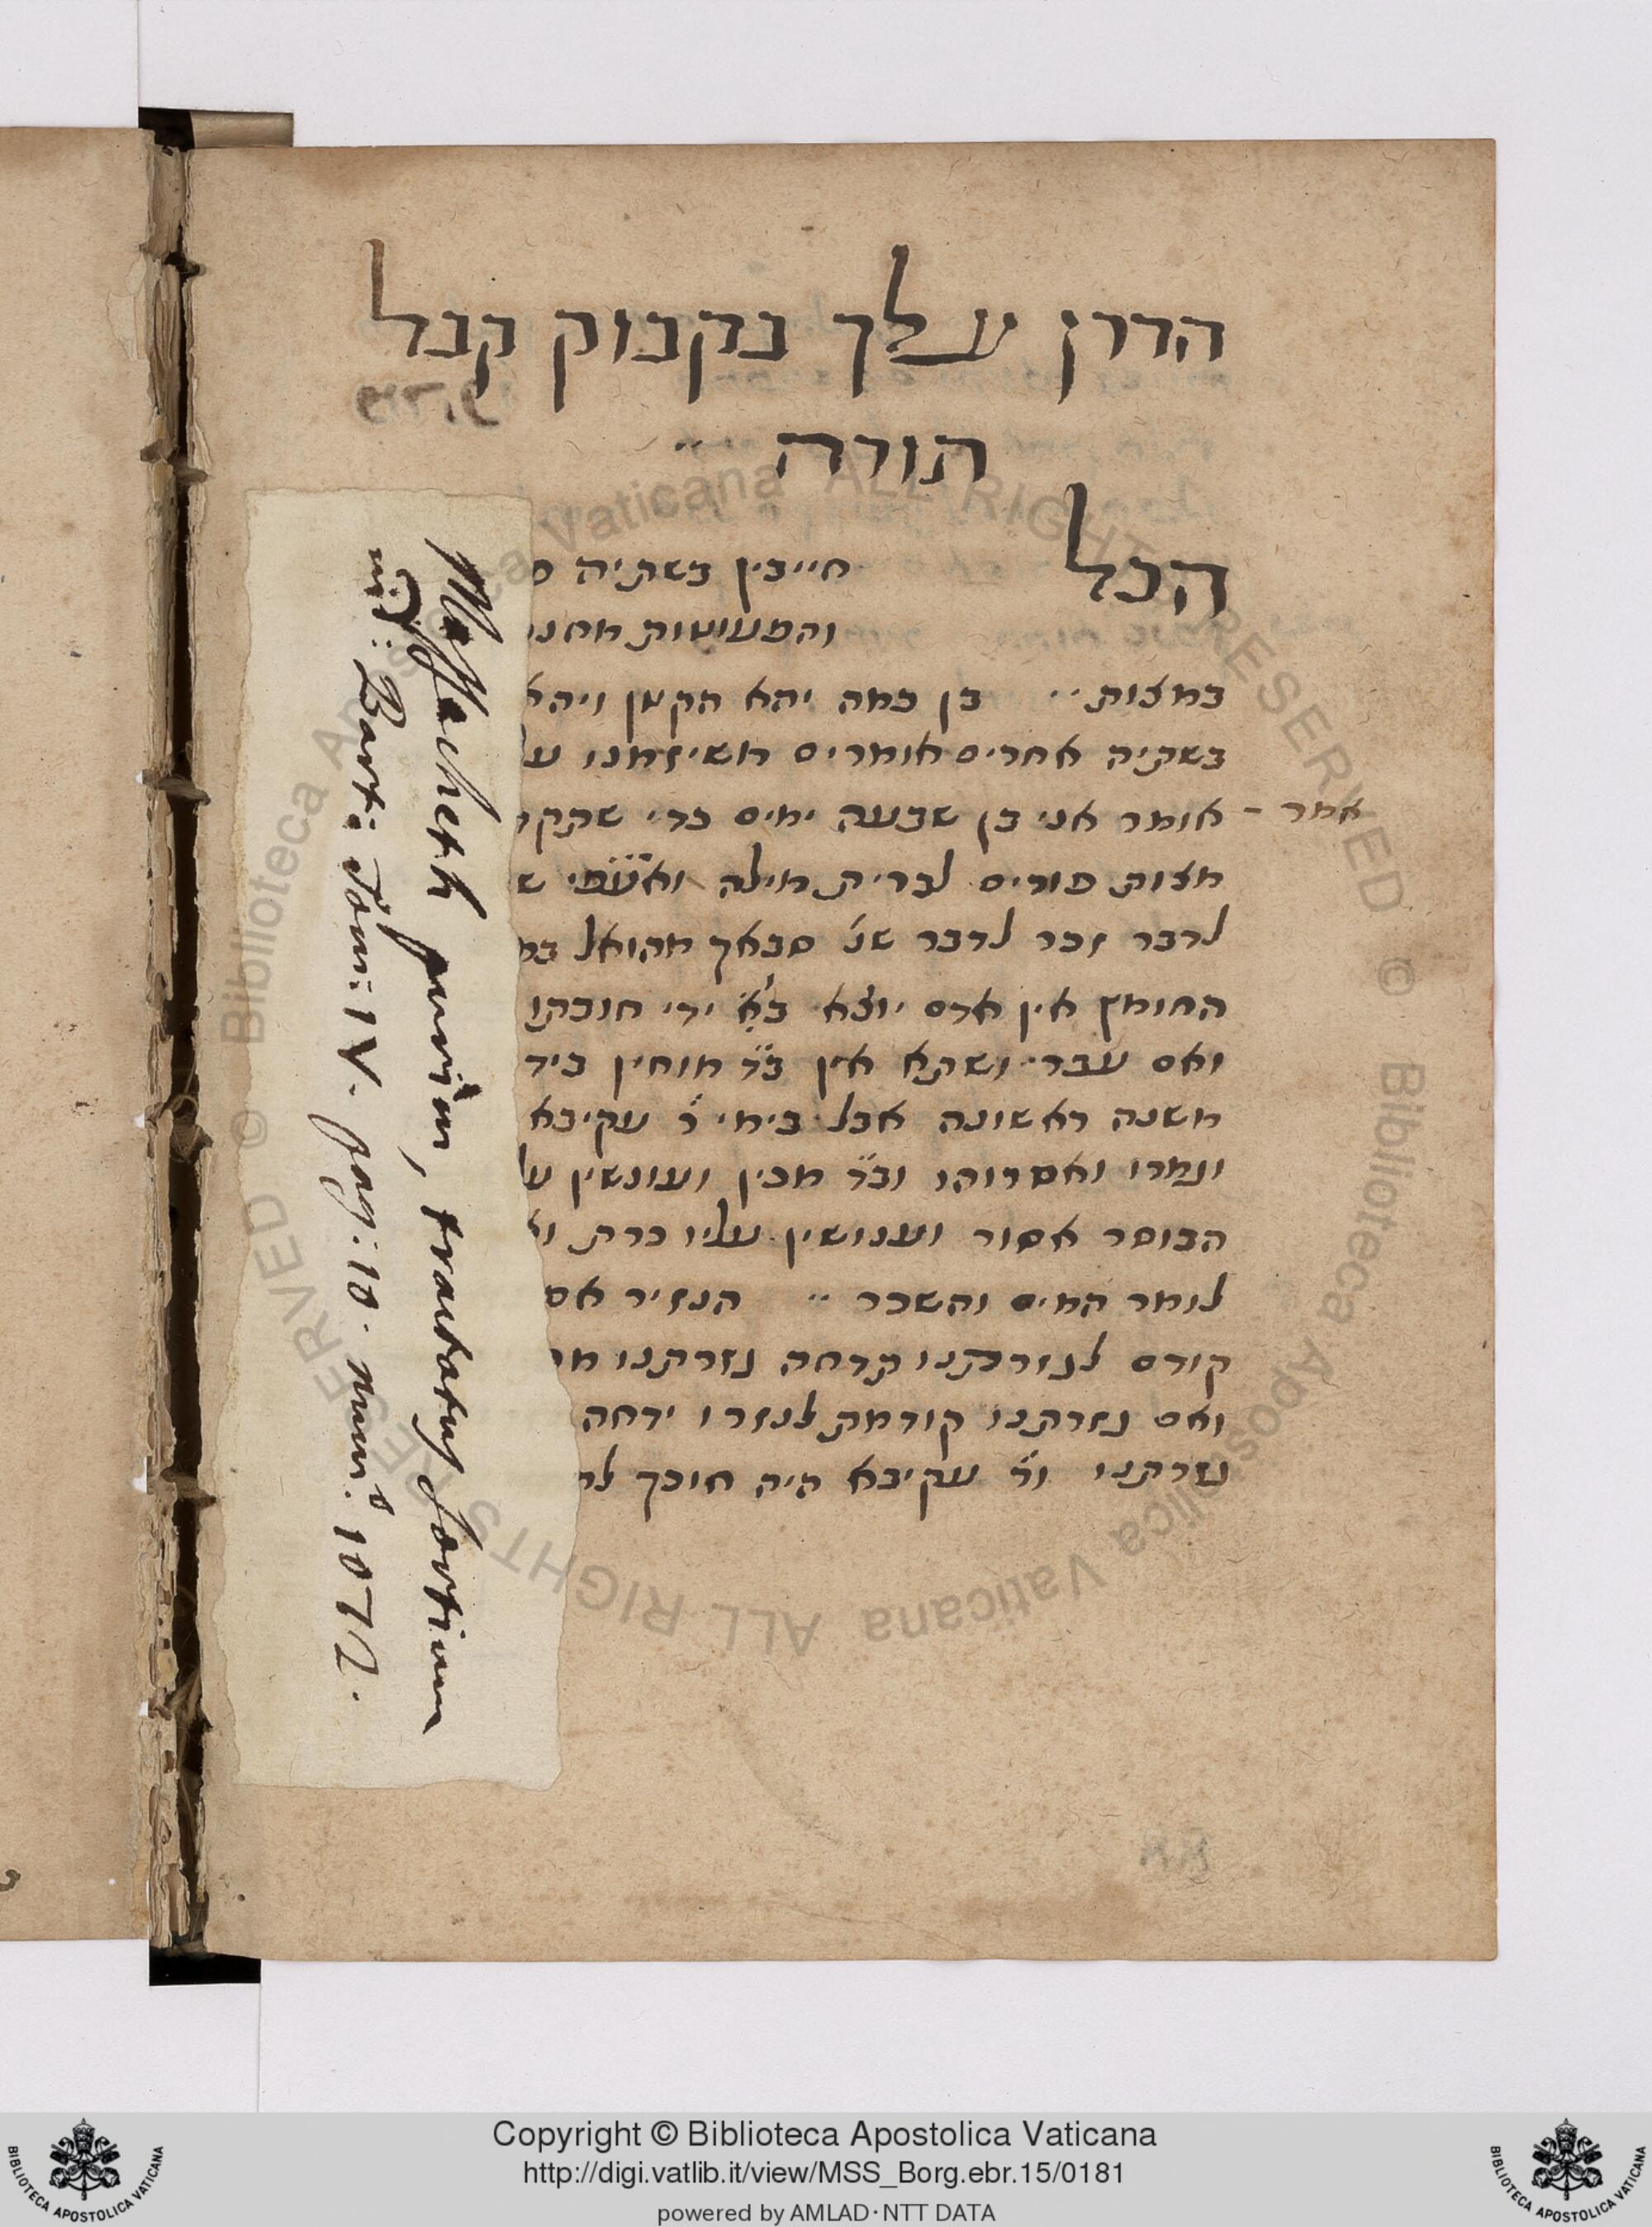 הדרן עלך בקבוק קבל
תורה
הכל
חייבין בשתיה
והמעושות
במצות בן כמה יהא הקטן ויהא
בשתיה אחרים אומרים
אמר - אומר אני בן שבעה ימים כדי
מצות פורים לברית מילה
לדבר זכר לדבר שנ׳ סבאך מהואל
החומץ אין אדם יוצא בו ידי חובתו
ואם עבר ושתה אין ב״ד מוחין ביד
משנה ראשונה אבל בימי ר׳ עקיבא
ונמרו ואסרוהו וב״ד מכין ועונשין
הבוסר אסור וענושין עליו כרת
לומר המים והשכר הנזיר
קודם
ואם קודמת לנזרו ידחה
ור׳ עקיבא היה הולך
Massacheth purim, tractatus sortium
vid: Bart: Tom: IV. pag: 10. num: 1072.
Copyright © Biblioteca Apostolica Vaticana
http://digi.vatlib.it/view/MSS_Borg.ebr.15/0181
powered by AMLAD·NTT DATA
BIBLIOTECA APOSTOLICA VATICANA
BIBLIOTECA APOSTOLICA VATICANA
© Biblioteca Apostolica Vaticana ALL RIGHTS RESERVED © Biblioteca Apostolica Vaticana ALL RIGHTS RESERVED